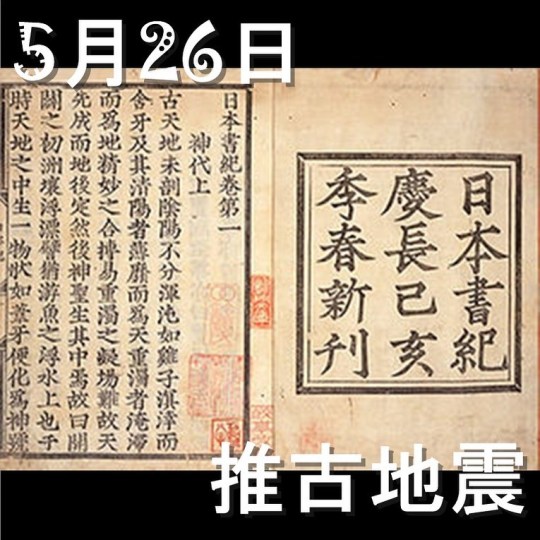 5月26日
日本書紀
慶長己亥
季春新刊
日本書紀卷第一
神代上
古天地未剖陰陽不分渾沌如雞子溟涬而
含牙及其清陽者薄靡而爲天重濁者淹滯
而爲地精妙之合摶易重濁之凝場難故天
先成而地後定然後神聖生其中焉故曰開
闢之初洲壤浮漂譬猶游魚之浮水上也于
時天地之中生一物狀如葦牙便化爲神號
推古地震